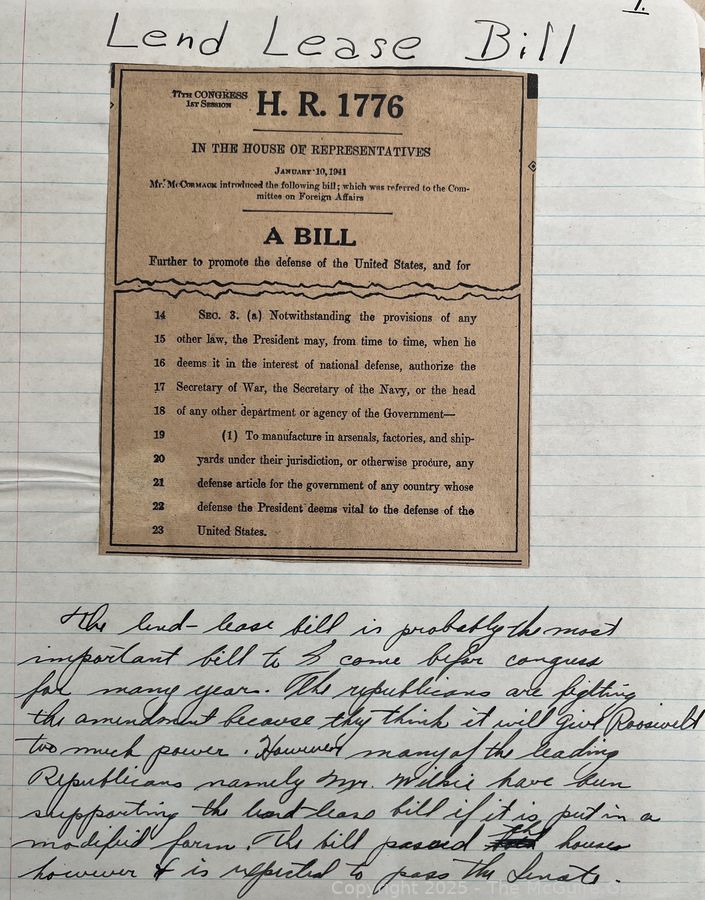 1.
Lend Lease Bill
77TH CONGRESS
1ST SESSION
H. R. 1776
IN THE HOUSE OF REPRESENTATIVES
JANUARY 10, 1941
Mr. MCCORMACK introduced the following bill; which was referred to the Com-
mittee on Foreign Affairs
A BILL
Further to promote the defense of the United States, and for
14 SEC. 3. (a) Notwithstanding the provisions of any
15 other law, the President may, from time to time, when he
16 deems it in the interest of national defense, authorize the
17 Secretary of War, the Secretary of the Navy, or the head
18 of any other department or agency of the Government—
19 (1) To manufacture in arsenals, factories, and ship-
20 yards under their jurisdiction, or otherwise procure, any
21 defense article for the government of any country whose
22 defense the President deems vital to the defense of the
23 United States.
The lend-lease bill is probably the most
important bill to come befor congress
for many years. The republicans are fighting
the amendment because they think it will give Roosivelt
too much power. However many of the leading
Republicans namely Mr. Wilkie have been
supporting the lend-lease bill if it is put in a
modified form. The bill passed the house
however & is expected to pass the Senate.
Copyright 2025 - The McGuire Group LLC